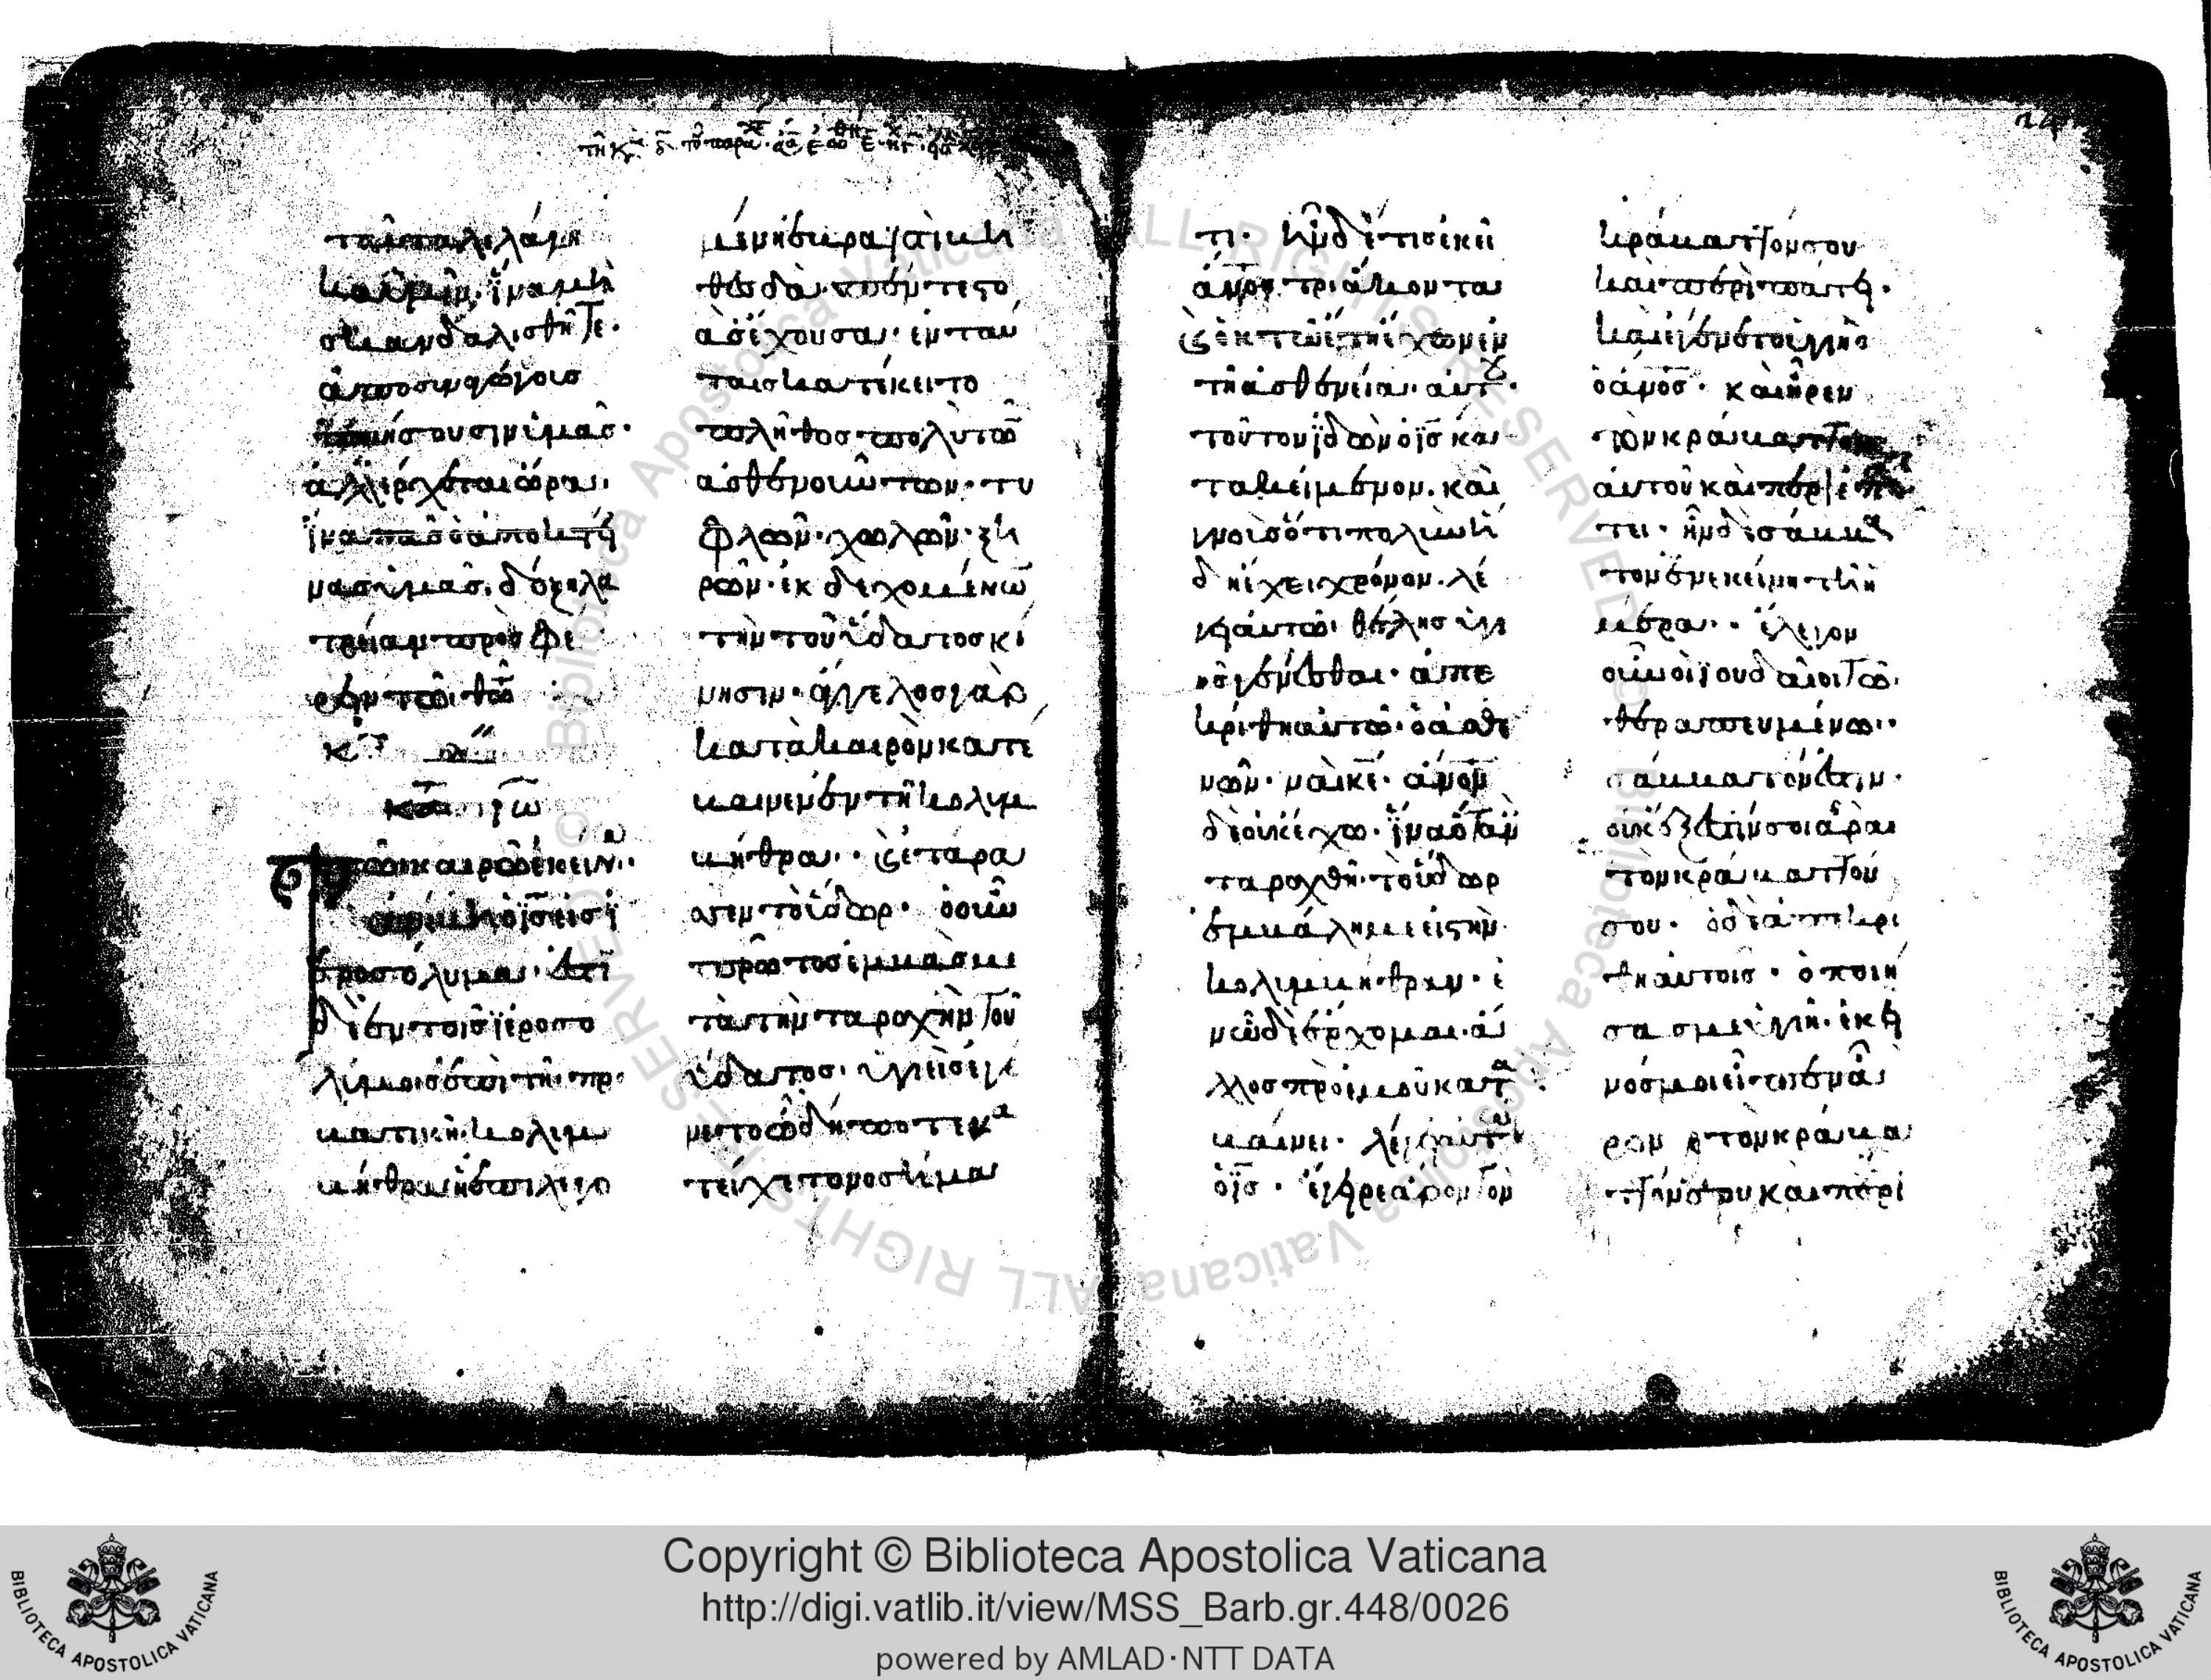 ταῦτα λελάλη
κα ὑμῖν, ἵνα μὴ
σκανδαλισθῆτε·
ἀποσυναγώγους
ποιήσουσιν ὑμᾶς·
ἀλλ' ἔρχεται ὥρα,
ἵνα πᾶς ὁ ἀποκτεί
νας ὑμᾶς, δόξῃ λα
τρείαν προσφέ
ρειν τῶι θ̅ω̅
Τῶι καιρῶ ἐκείνω·
ἀνέβη ὁ ι̅ς̅ εἰς ϊ
εροσόλυμα· ἔστι
δὲ ἐν τοῖς ϊεροσο
λύμοις ἐπὶ τῆ προ
βατικῆ κολυμ
βήθρα ἡ ἐπιλεγο
μένη ἑβραϊστὶ βη
θεσδὰ· πέντε στο
ὰς ἔχουσα· ἐν ταύ
ταις κατέκειτο
πλῆθος πολὺ τῶν
ἀσθενούντων· τυ
φλῶν· χωλῶν· ξη
ρῶν· ἐκδεχομένων
τὴν τοῦ ὕδατος κί
νησιν· ἄγγελος γὰρ
κατὰ καιρὸν κατέ
βαινεν ἐν τῆ κολυμ
βήθρα· καὶ ἐτάρα
σσεν τὸ ὕδωρ· ὁ οὖν
πρῶτος ἐμβὰς με
τὰ τὴν ταραχὴν τοῦ
ὕδατος· ὑγιὴς ἐγί
νετο ὧ δήποτε κα
τείχετο νοσήμα
τι· ἦν δέ τις ἐκεῖ
α̅ν̅ο̅ς̅ τριάκοντα
καὶ ὀκτὼ ἔτη ἔχων ἐν
τῆ ἀσθενεία αὐτοῦ·
τοῦτον ϊδὼν ὁ ι̅ς̅ κα
τακείμενον· καὶ
γνοὺς ὅτι πολὺν ἤ
δη ἔχει χρόνον· λέ
γει αὐτῶ· θέλεις ὑγι
ὴς γενέσθαι· ἀπε
κρίθη αὐτῶ· ὁ ἀσθε
νῶν· ναὶ κ̅ε̅· α̅ν̅ο̅ν̅
δὲ οὐκ ἔχω· ἵνα ὅταν
ταραχθῆ τὸ ὕδωρ
ἐμβάλη με εἰς τὴν
κολυμβήθραν· ἐ
ν ὧ δὲ ἔρχομαι· ἄ
λλος πρὸ ἐμοῦ κατα
βαίνει· λέγει αὐτῶ
ὁ ι̅ς̅· ἔγειρε ἆρον τὸν
κράβαττόν σου
καὶ περιπάτει·
καὶ ἐγένετο ὑγιὴς
ὁ α̅ν̅ο̅ς̅· καὶ ἦρεν
τὸν κράβαττον
αὐτοῦ καὶ περιεπά
τει· ἦν δὲ σάββα
τον ἐν ἐκείνη τῆ ἡ
μέρα· ἔλεγον
οὖν οἱ ϊουδαῖοι τῶ
τεθεραπευμένω·
σάββατόν ἐστιν·
οὐκ ἔξεστίν σοι ἆραι
τὸν κράβαττόν
σου· ὁ δὲ ἀπεκρί
θη αὐτοῖς· ὁ ποιή
σας με ὑγιῆ· ἐκεῖ
νός μοι εἶπεν ἆ
ρον τὸν κράβα
ττόν σου καὶ περι
Copyright © Biblioteca Apostolica Vaticana
http://digi.vatlib.it/view/MSS_Barb.gr.448/0026
powered by AMLAD·NTT DATA
BIBLIOTECA APOSTOLICA VATICANA
BIBLIOTECA APOSTOLICA VATICANA